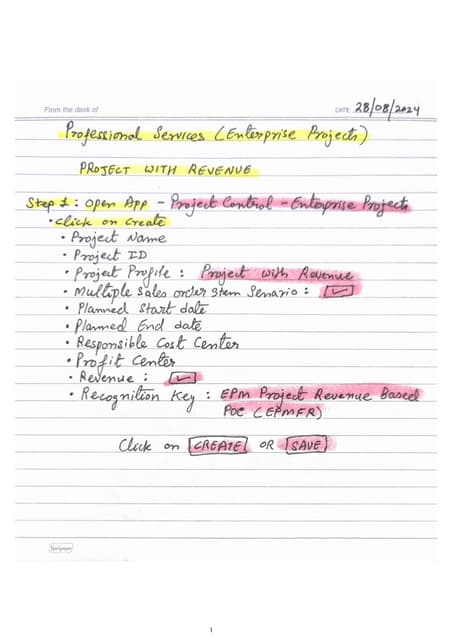 From the desk of
DATE 28/08/2024
Professional Services (Enterprise Projects)
PROJECT WITH REVENUE
Step 1 : Open App - Project Control - Enterprise Projects
• Click on Create
• Project Name
• Project ID
• Project Profile : Project with Revenue
• Multiple Sales order Item Senario : ✓
• Planned Start date
• Planned End date
• Responsible Cost Center
• Profit Center
• Revenue : ✓
• Recognition Key : EPM Project Revenue Based
POC (EPMFR)
Click on CREATE OR SAVE
1